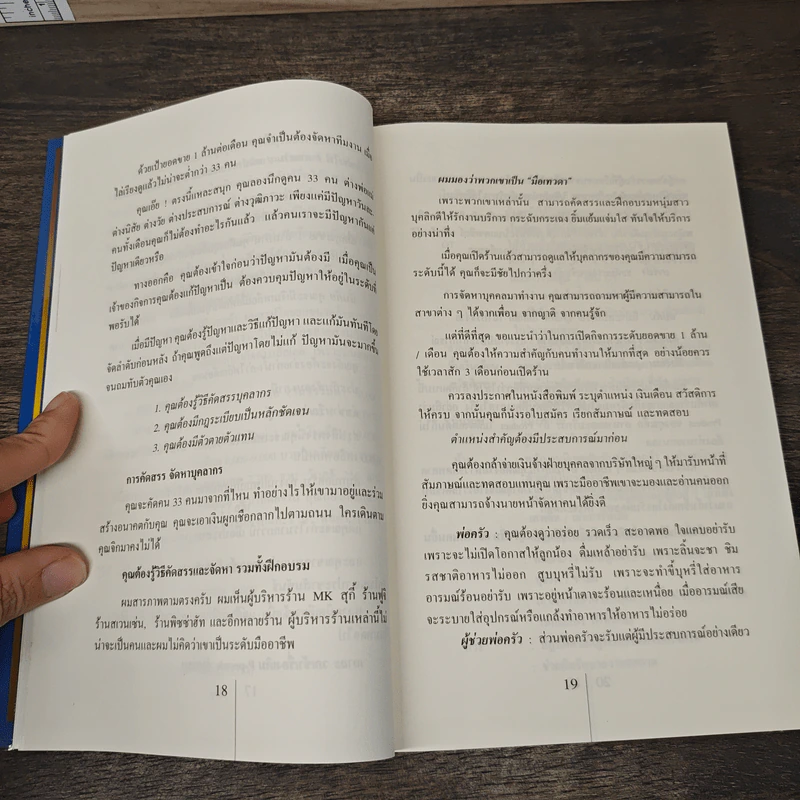 ด้วยเป้ายอดขาย 1 ล้านต่อเดือน คุณจำเป็นต้องจัดหาทีมงาน เมื่อ
ไล่เรียงดูแล้วไม่น่าจะต่ำกว่า 33 คน
คุณเอ๊ย ! ตรงนี้แหละสนุก คุณลองนึกดูคน 33 คน ต่างพ่อแม่
ต่างนิสัย ต่างวัย ต่างประสบการณ์ ต่างวุฒิภาวะ เพียงแค่มีปัญหาวันละ
คนทั้งเดือนคุณก็ไม่ต้องทำอะไรกันแล้ว แล้วคนเราจะมีปัญหากันแค่
ปัญหาเดียวหรือ
ทางออกคือ คุณต้องเข้าใจก่อนว่าปัญหามันต้องมี เมื่อคุณเป็น
เจ้าของกิจการคุณต้องแก้ปัญหาเป็น ต้องควบคุมปัญหาให้อยู่ในระดับที่
พอรับได้
เมื่อมีปัญหา คุณต้องรู้ปัญหาและวิธีแก้ปัญหา และแก้มันทันทีโดย
จัดลำดับก่อนหลัง ถ้าคุณพูดถึงแต่ปัญหาโดยไม่แก้ ปัญหามันจะมากขึ้น
จนถมทับตัวคุณเอง
1. คุณต้องรู้วิธีคัดสรรบุคลากร
2. คุณต้องมีกฎระเบียบเป็นหลักชัดเจน
3. คุณต้องมีตัวตายตัวแทน
การคัดสรร จัดหาบุคลากร
คุณจะคัดคน 33 คนมาจากที่ไหน ทำอย่างไรให้เขามาอยู่และร่วม
สร้างอนาคตกับคุณ คุณจะเอาเงินผูกเชือกลากไปตามถนน ใครเดินตาม
คุณจิกมาคงไม่ได้
คุณต้องรู้วิธีคัดสรรและจัดหา รวมทั้งฝึกอบรม
ผมสารภาพตามตรงครับ ผมเห็นผู้บริหารร้าน MK สุกี้ ร้านฟูจิ
ร้านสเวนเซ่น, ร้านพิซซ่าฮัท และอีกหลายร้าน ผู้บริหารร้านเหล่านี้ไม่
น่าจะเป็นคนและผมไม่คิดว่าเขาเป็นระดับมืออาชีพ
18
ผมมองว่าพวกเขาเป็น "มือเทวดา"
เพราะพวกเขาเหล่านั้น สามารถคัดสรรและฝึกอบรมหนุ่มสาว
บุคลิกดีให้รักงานบริการ กระฉับกระเฉง ยิ้มแย้มแจ่มใส ทันใจให้บริการ
อย่างน่าทึ่ง
เมื่อคุณเปิดร้านแล้วสามารถดูแลให้บุคลากรของคุณมีความสามารถ
ระดับนี้ได้ คุณก็จะมีชัยไปกว่าครึ่ง
การจัดหาบุคคลมาทำงาน คุณสามารถถามหาผู้มีความสามารถใน
สาขาต่าง ๆ ได้จากเพื่อน จากญาติ จากคนรู้จัก
แต่ที่ดีที่สุด ขอแนะนำว่าในการเปิดกิจการระดับยอดขาย 1 ล้าน
/ เดือน คุณต้องให้ความสำคัญกับคนทำงานให้มากที่สุด อย่างน้อยควร
ใช้เวลาสัก 3 เดือนก่อนเปิดร้าน
ควรลงประกาศในหนังสือพิมพ์ ระบุตำแหน่ง เงินเดือน สวัสดิการ
ให้ครบ จากนั้นคุณก็นั่งรอใบสมัคร เรียกสัมภาษณ์ และทดสอบ
ตำแหน่งสำคัญต้องมีประสบการณ์มาก่อน
คุณต้องกล้าจ่ายเงินจ้างฝ่ายบุคคลจากบริษัทใหญ่ ๆ ให้มารับหน้าที่
สัมภาษณ์และทดสอบแทนคุณ เพราะมืออาชีพเขาจะมองและอ่านคนออก
ยิ่งคุณสามารถจ้างนายหน้าจัดหาคนได้ยิ่งดี
พ่อครัว : คุณต้องดูว่าอร่อย รวดเร็ว สะอาดพอ ใจแคบอย่ารับ
เพราะจะไม่เปิดโอกาสให้ลูกน้อง ดื่มเหล้าอย่ารับ เพราะลิ้นจะชา ชิม
รสชาติอาหารไม่ออก สูบบุหรี่ไม่รับ เพราะจะทำขี้บุหรี่ใส่อาหาร
อารมณ์ร้อนอย่ารับ เพราะอยู่หน้าเตาจะร้อนและเหนื่อย เมื่ออารมณ์เสีย
จะระบายใส่อุปกรณ์หรือแกล้งทำอาหารให้อาหารไม่อร่อย
ผู้ช่วยพ่อครัว : ส่วนพ่อครัวจะรับแต่ผู้มีประสบการณ์อย่างเดียว
19